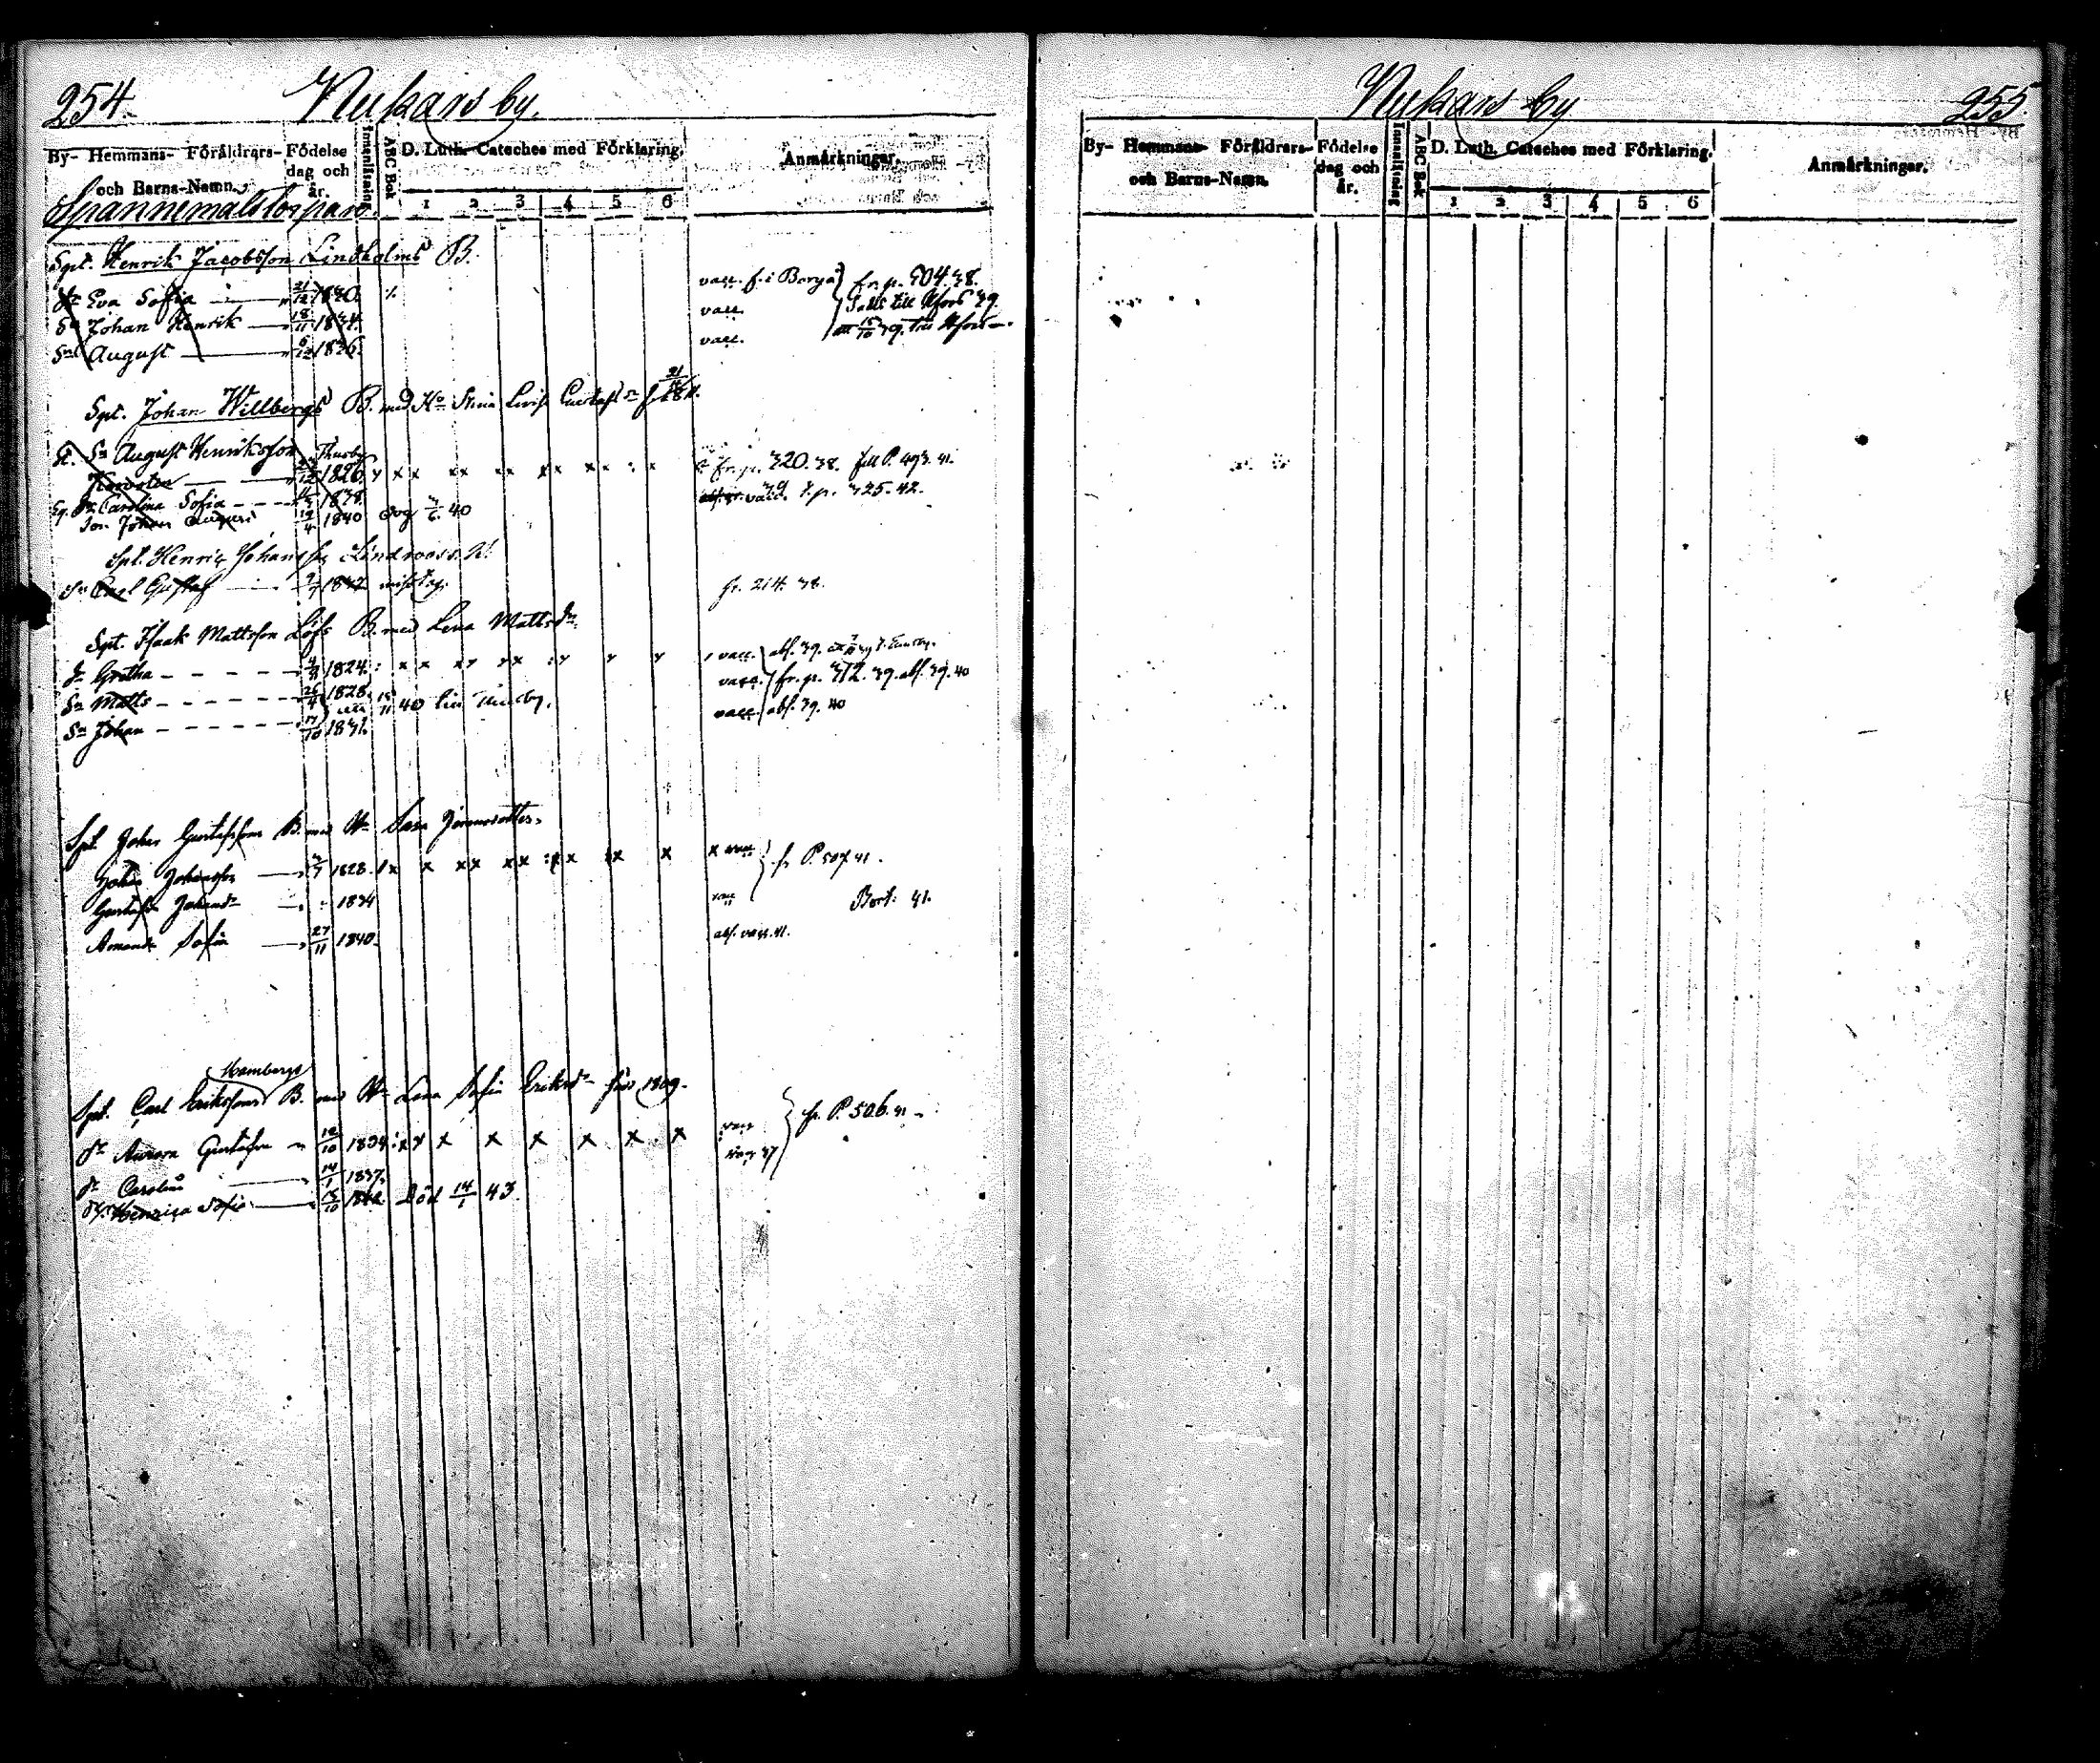 254.
Nukars by.
By- Hemmans- Föräldrars- och Barns-Namn.
Födelse dag och år.
Innanläsning
ABC Bok
D. Luth. Cateches med Förklaring.
1 2 3 4 5 6
Anmärkningar.
Spannemalstorpare.
Spt. Henrik Jacobsson Lindholms B.
Dr Eva Sofia 21/12 1830. vacc. f. i Borgå fr. p. 504. 38.
Sn Johan Henrik 18/11 1834. vacc.
Sn August 6/12 1836. vacc.
Spt. Johan Willbergs B. med Hu Stina Lovisa Gustafsdr
Sn August Henriksson 1826 x x xx xx xx x x fr. p. 320. 38. till P. 493. 41.
Dr Carolina Sofia 1838. vacc. 39 t. p. 325. 42.
Son Johan August 19/4 1840 Dog 3/6 40
Spt. Henric Johansson Lindroos
Sn Carl Gustaf 1837 fr. 214. 38.
Spt. Isaak Mattsson Löfs B. med Lena Mattsdr
Dr Gretha 4/8 1824 x x xx xx vacc. abs. 39.
Sn Matts 26/4 1828. vacc. fr. p. 372. 39. abs. 39. 40
15/11 40 till Thusby.
Sn Johan 17/10 1831. vacc. abs. 39. 40
Spt. Johan Gustafssons B. med Hu Sara
Johan Johansson 3/7 1828. x x xx xx xx x x x vacc fr P. 507 41.
Gustafva Johansdr 1834 vacc Bort: 41.
Amanda Sofia 27/11 1840. abs. vacc. 41.
Hambergs
Spt. Carl Erikssons B. med Hu Lena Sofia Eriksdr född 1809.
Dr Aurora Gustafva 12/10 1834 x x x x x x x x vacc fr. P. 506. 41
Dr Carolina 14/1 1837. vacc 37
Dr. Henrica Sofia 15/10 1842 Död 14/1 43.
Nukars by
255.
By- Hemmans- Föräldrars- och Barns-Namn.
Födelse dag och år.
Innanläsning
ABC Bok
D. Luth. Cateches med Förklaring.
1 2 3 4 5 6
Anmärkningar.